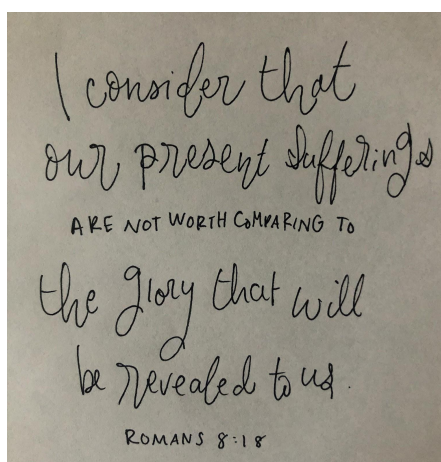 I consider that
our present sufferings
ARE NOT WORTH COMPARING TO
the glory that will
be revealed to us.
ROMANS 8:18